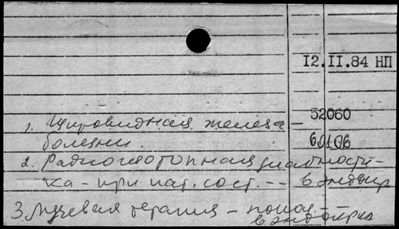 12.II.84 НП
1. Щитовидная железа – 52060
болезни.
2. Радиоизотопная диагности-
ка - при пат. сост. --
3. Лучевая терапия –